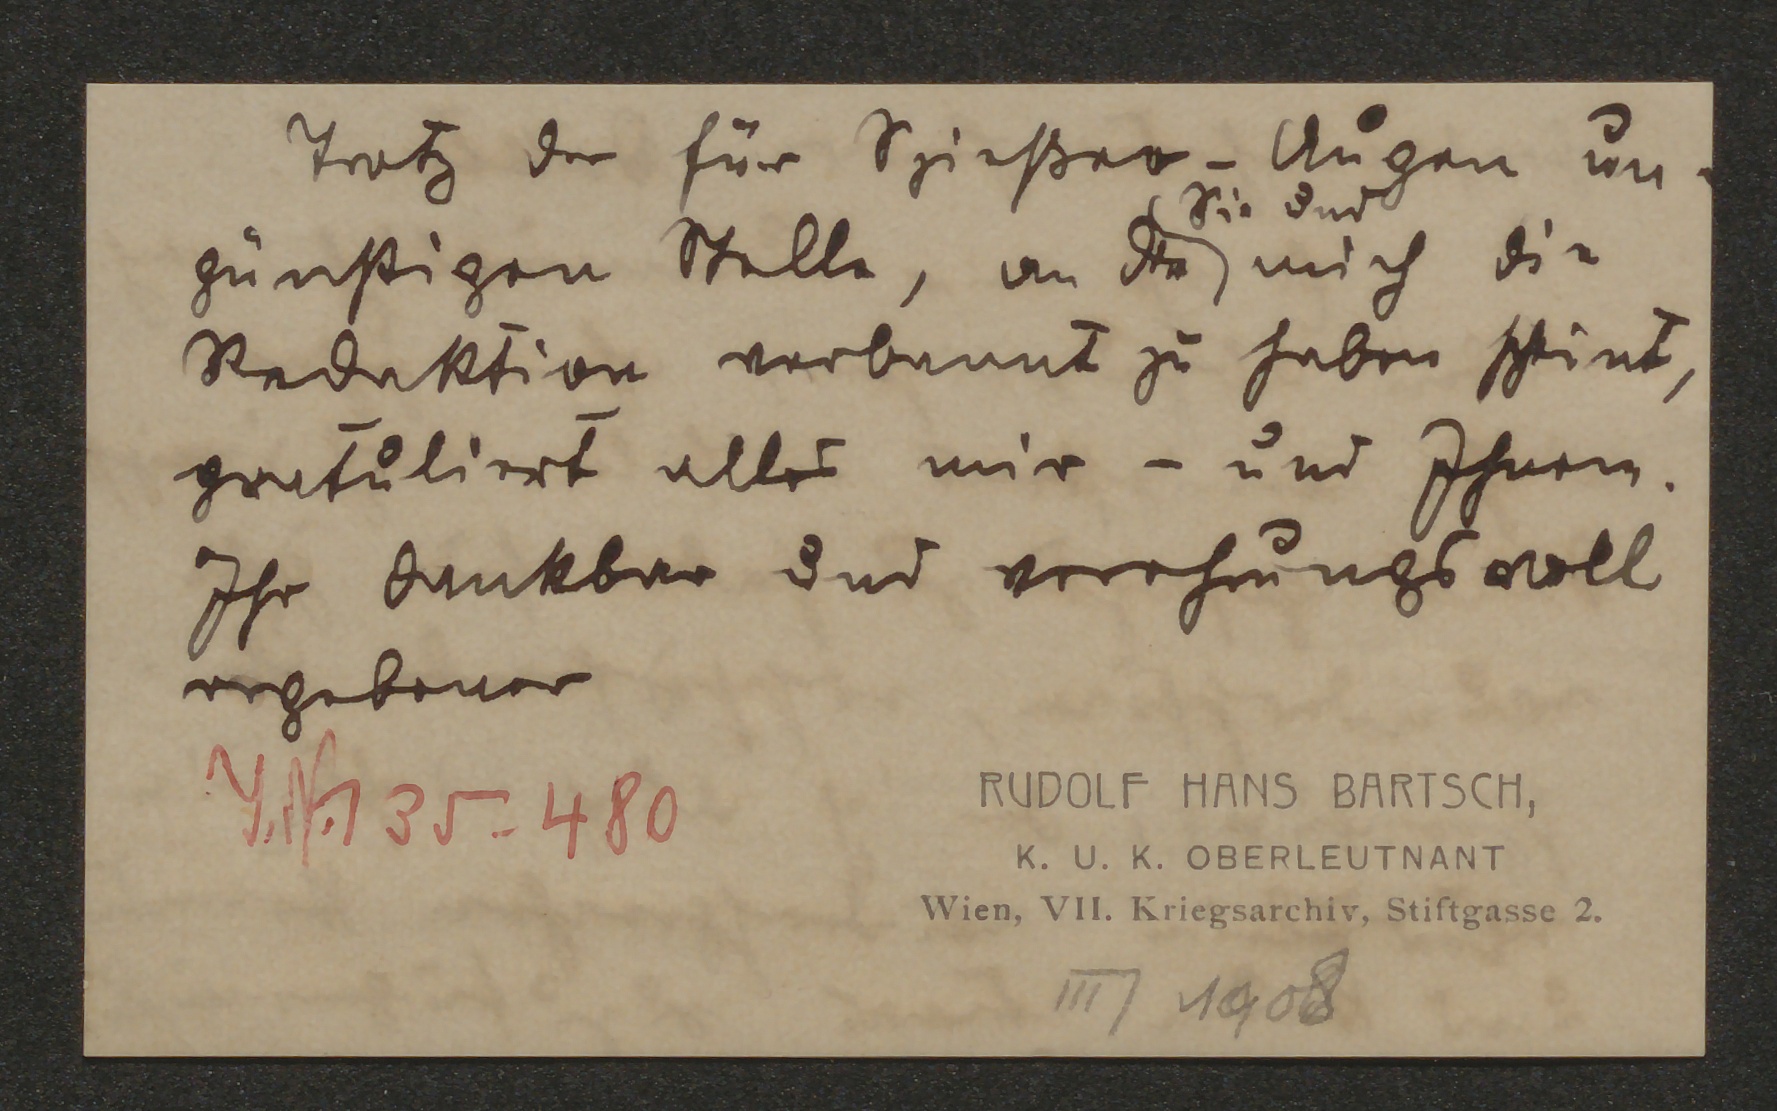 Trotz der für Spießer-Augen un-
günstigen Stelle, an die Sie und mich die
Redaktion verbannt zu haben scheint,
gratuliert alles mir - und Ihnen.
Ihr dankbar und verehrungsvoll
ergebener
I.N. 135-480
RUDOLF HANS BARTSCH,
K. U. K. OBERLEUTNANT
Wien, VII. Kriegsarchiv, Stiftgasse 2.
III 1908